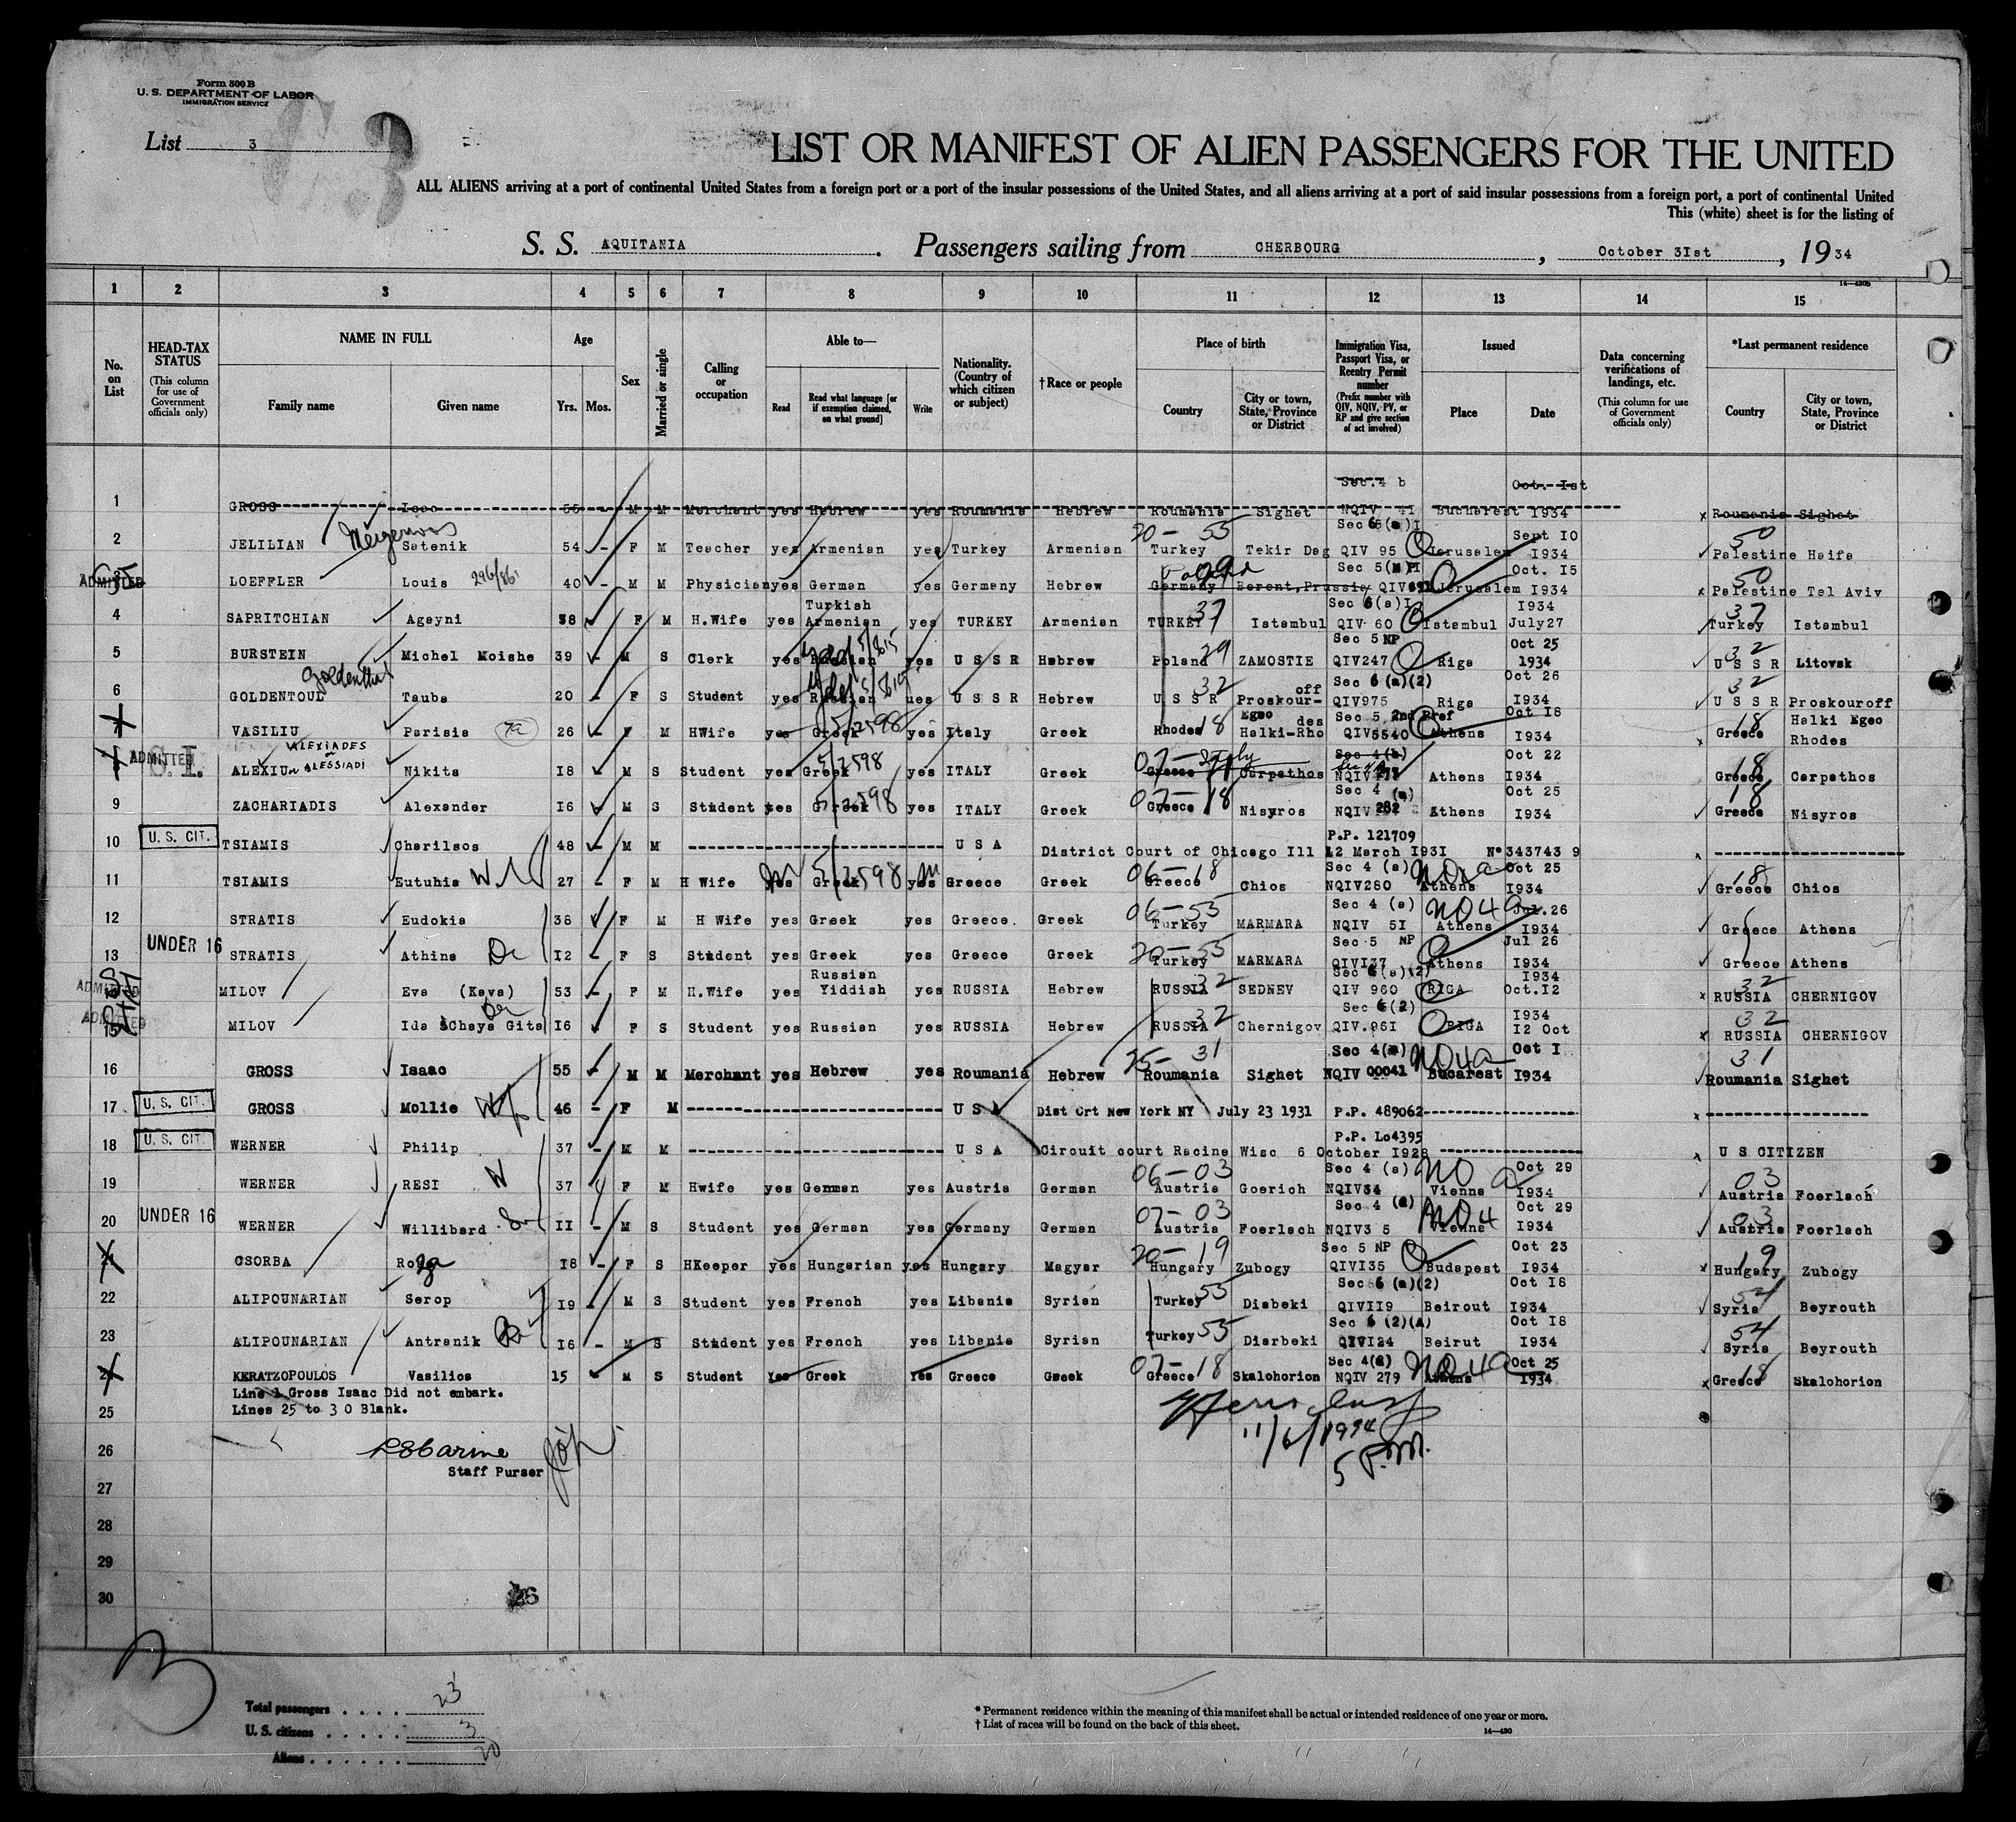 Form 500 B
U. S. DEPARTMENT OF LABOR
IMMIGRATION SERVICE
List 3
LIST OR MANIFEST OF ALIEN PASSENGERS FOR THE UNITED
ALL ALIENS arriving at a port of continental United States from a foreign port or a port of the insular possessions of the United States, and all aliens arriving at a port of said insular possessions from a foreign port, a port of continental United
This (white) sheet is for the listing of
S. S. AQUITANIA. Passengers sailing from CHERBOURG, October 3Ist, 1934
14—430b
1 2 3 4 5 6 7 8 9 10 11 12 13 14 15
No. on List
HEAD-TAX STATUS (This column for use of Government officials only)
NAME IN FULL Family name Given name
Age Yrs. Mos.
Sex
Married or single
Calling or occupation
Able to— Read Read what language [or if exemption claimed, on what ground] Write
Nationality. (Country of which citizen or subject)
†Race or people
Place of birth Country City or town, State, Province or District
Immigration Visa, Passport Visa, or Reentry Permit number (Prefix number with QIV, NQIV, PV, or RP and give section of act involved)
Issued Place Date
Data concerning verifications of landings, etc. (This column for use of Government officials only)
*Last permanent residence Country City or town, State, Province or District
Sec.4 b Oct. Ist
1 GROSS Isac 55 - M M Merchant yes Hebrew yes Roumania Hebrew Roumania Sighet NQIV 4I Bucharest I934 x Roumania Sighet
20-55 Sec 6(a)I Sept I0 50
2 JELILIAN Satenik 54 - F M Teacher yes Armenian yes Turkey Armenian Turkey Tekir Dag QIV 95 Jerusalem I934 Palestine Haifa
Poland 29 Sec 5(NPI Oct. I5 50
ADMITTED LOEFFLER Louis 296/861 40 - M M Physician yes German yes Germany Hebrew Germany Berent, Prussia Jerusalem I934 x Palestine Tel Aviv
Turkish 37 Sec 6(a)I I934 37
4 SAPRITCHIAN Agayni 38 F M H.Wife yes Armenian yes TURKEY Armenian TURKEY Istambul QIV 60 Istambul July27 Turkey Istambul
29 Sec 5 NP Oct 25 32
5 BURSTEIN Michel Moishe 39 - M S Clerk yes Russian yes U S S R Hebrew Poland ZAMOSTIE QIV247 Riga 1934 U S S R Litovsk
Goldenthal 32 off Sec 6 (a)(2) Oct 26 32
6 GOLDENTOUL Tauba 20 - F S Student yes Russian ues U S S R Hebrew U S S R Proskour- QIV975 Riga I934 U S S R Proskouroff
5/2598 18 Egeo des Sec 5 2nd Pref Oct I8 18 Halki Egeo
VASILIU Parisia 26 - F M HWife yes Greek yes Italy Greek Rhodes Halki-Rho QIV5540 Athens I934 Greece Rhodes
ALEXIADES or ALESSIADI 5/2598 07- Italy Sec 4(b) Oct 22 18
ADMITTED S.I. ALEXIU Nikita I8 M S Student yes Greek yes ITALY Greek Greece Carpathos NQIV Athens I934 Greece Carpathos
5/2598 07-18 Sec 4 (a) Oct 25 18
9 ZACHARIADIS Alexander I6 M S Student yes Greek yes ITALY Greek Greece Nisyros NQIV 282 Athens I934 Greece Nisyros
P.P. 121709
10 U. S. CIT. TSIAMIS Charilaos 48 - M M U S A District Court of Chicago Ill 12 March I93I N° 343743 9
5/2598 06-18 Sec 4 (a) Oct 25 18
11 TSIAMIS Eutuhia W 27 - F M H Wife yes Greek yes Greece Greek Greece Chios NQIV280 Athens I934 Greece Chios
06-55 Sec 4 (a) NO 4a Jul.26
12 STRATIS Eudokia 38 F M H Wife yes Greek yes Greece. Greek Turkey MARMARA NQIV 5I Athens I934 Greece Athens
UNDER 16 20-55 Sec 5 NP Jul 26
13 STRATIS Athina I2 - F S Student yes Greek yes Greece Greek Turkey MARMARA QIVI37 Athens I934 Greece Athens
Russian 32 Sec 6(a)(2) I934 32
ADMITTED MILOV Eva (Kava) 53 - F M H.Wife yes Yiddish yes RUSSIA Hebrew RUSSIA SEDNEV QIV 960 RIGA Oct.I2 x RUSSIA CHERNIGOV
32 Sec 6(2) I934 32
ADMITTED 15 MILOV Ida &Chaya Gita I6 F S Student yes Russian yes RUSSIA Hebrew RUSSIA Chernigov QIV.96I RIGA I2 Oct x RUSSIA CHERNIGOV
25-31 Sec 4(a) NO 4a Oct I 31
16 GROSS Isaac 55 - M M Merchant yes Hebrew yes Roumania Hebrew Roumania Sighet NQIV 00041 Bucarest I934 Roumania Sighet
17 U. S. CIT. GROSS Mollie 46 - F M U S A Dist Crt New York NY July 23 1931 P.P. 489062 x
P.P. Lo4395
18 U. S. CIT. WERNER Philip 37 - M M U S A Circuit court Racine Wisc 6 October 1928 U S CITIZEN
06-03 Sec 4 (a) NO Oct 29 03
19 WERNER RESI W 37 F M Hwife yes German yes Austria German Austria Goerich NQIV34 Vienna I934 Austria Foerlach
UNDER 16 07-03 Sec 4 (a) NO4 Oct 29 03
20 WERNER Willibard II - M S Student yes German yes Germany German Austria Foerlach NQIV3 5 Vienna I934 Austria Foerlach
20-19 Sec 5 NP Oct 23 19
CSORBA Roza I8 - F S HKeeper yes Hungarian yes Hungary Magyar Hungary Zubogy QIVI35 Budapest I934 x Hungary Zubogy
55 Sec 6 (a)(2) Oct I8 54
22 ALIPOUNARIAN Serop I9 - M S Student yes French yes Libania Syrian Turkey Diabeki QIVII9 Beirout I934 Syria Beyrouth
55 Sec 6 (2)(A) Oct I8 54
23 ALIPOUNARIAN Antranik I6 - M S Student yes French yes Libania Syrian Turkey Diarbeki QIVI24 Beirut I934 Syria Beyrouth
07-18 Sec 4(a) NO 4a Oct 25 18
KERATZOPOULOS Vasilios 15 M S Student Yes Greek Yes Greece Greek Greece Skalohorion NQIV 279 Athens 1934 x Greece Skalohorion
Line 1 Gross Isaac Did not embark.
Lines 25 to 3 0 Blank.
25
11/6/1934
5 P.M.
26
Staff Purser
27
28
29
30
3
Total passengers . . . . 23
U. S. citizens . . . . . 3
Aliens . . . . . . 20
* Permanent residence within the meaning of this manifest shall be actual or intended residence of one year or more.
† List of races will be found on the back of this sheet.
14—430